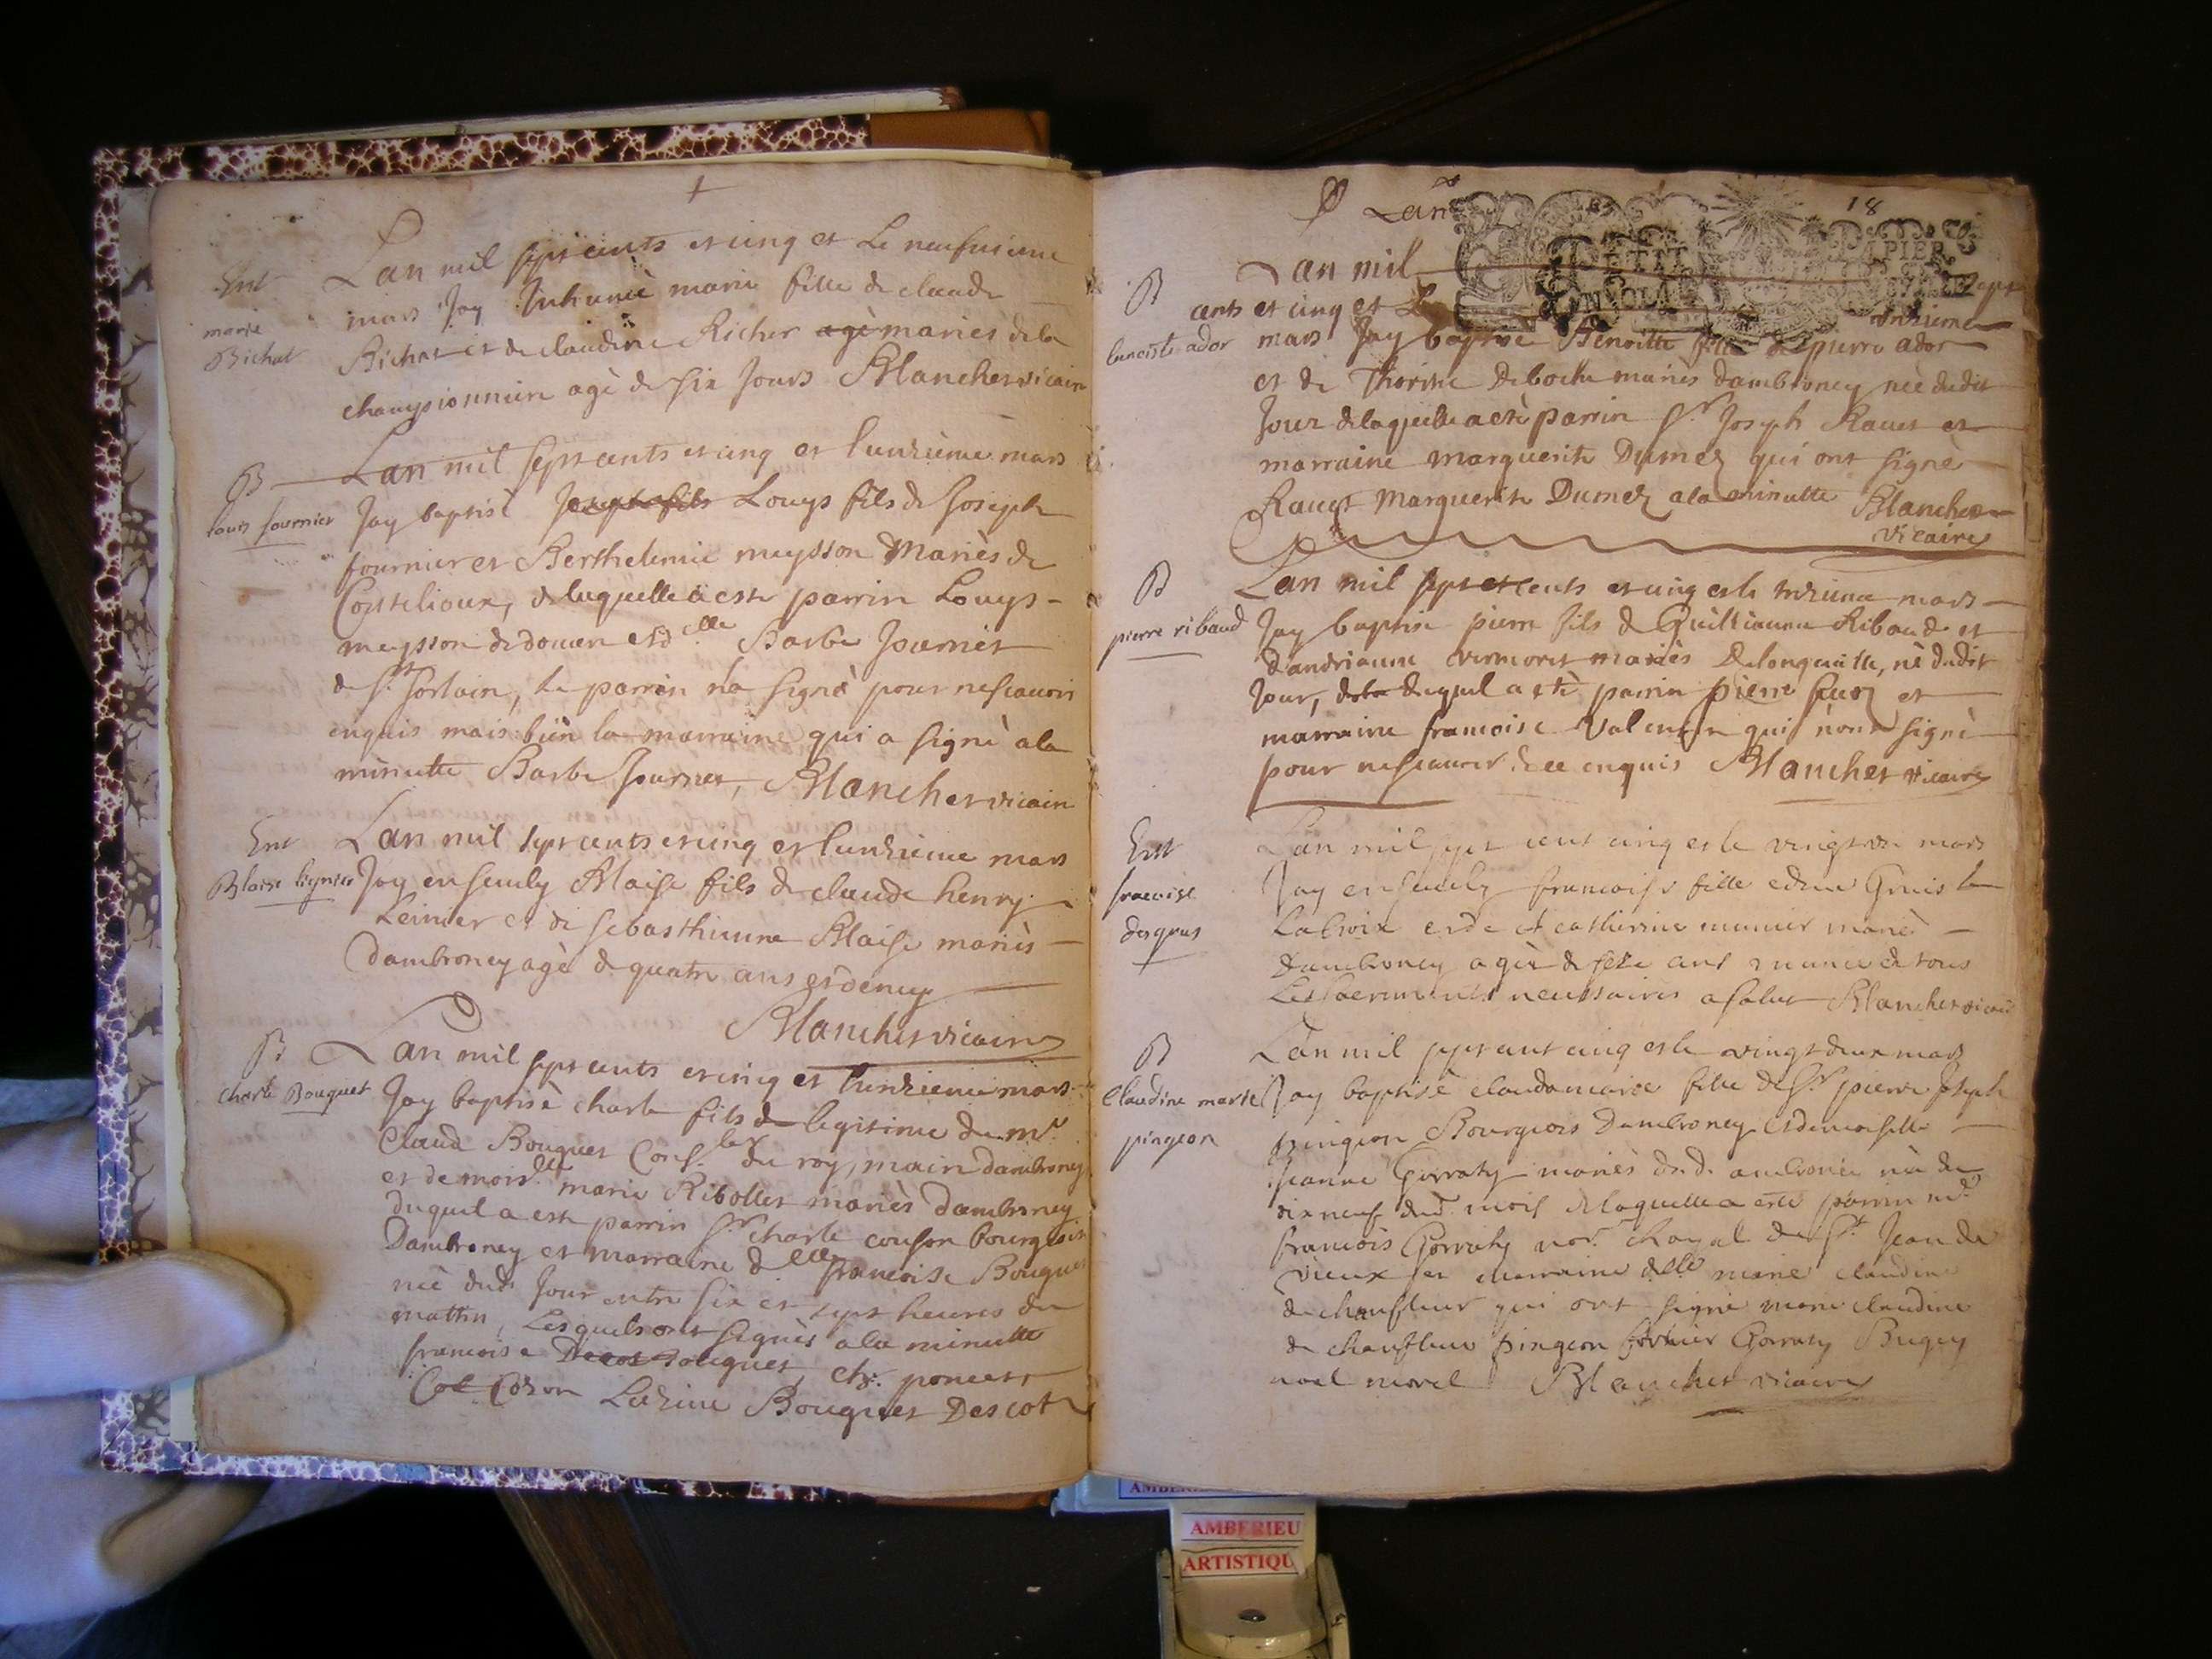 Ent
marie
Bichat
Lan mil sept cents et cinq et Le neufvieme
mars Jay Inhumè marie fille de claude
Bichat et de claudine Richer agè mariès dela
championniere agè de six Jours Blanchet vicaire
B
louis fournier
Lan mil sept cents et cinq et lunzième mars
Jay baptisè Joseph fils Louys fils de Joseph
fournier et Berthelemie meysson Mariès de
Coutelieux, de laquelle a estè parrin Louys
meysson de douvre et d.elle Barbe Journet
de St. Sorlain, le parrin na signè pour ne scavoir
enquis mais bien la marraine qui a signè ala
minutte Barbe Journet, Blanchet vicaire
Ent
Blaise
Lan mil sept cents et cinq et lunzieme mars
Jay ensevely Blaise fils de claude henry
Leinier et de sebasthienne Blaise mariès
Dambroney agè de quatre ans et demy
Blanchet vicaire
B
Charle Bouquet
Lan mil sept cents et cinq et lunzieme mars
Jay baptisè charle fils de legitime de mr.
Claud Bouquet Cons.ler du roy, maire dambroney
et demois.lle marie Ribollet mariès Dambroney
duquel a estè parrin Sr. charle couson bourgeois
Dambroney et marraine delle francoise Bouquet
nè dud. Jour entre six et sept heures du
mattin, Lesquels ont signès ala minutte
francoise Descot Bouquet, ch. poncet,
Cot Coson Bouquet Descot
18
Lan
PETIT PAPIER
B
benoiste ador
Lan mil sept
cents et cinq et Le
mars Jay baptisè Benoitte fille de pierre ador
et de Thoisine mariès dambroney nèe dudit
Jour de laquelle a estè parrin Sr. Joseph Ravet et
marraine marguerite Dumez qui ont signè
Ravet Marguerite Dumez ala minutte Blanchet
vicaire
B
pierre ribaud
Lan mil sept et cents et cinq et le treizieme mars
Jay baptisè pierre fils de Guillaume Ribaud et
dandrianne vermoret mariès Delongeville, nè dudit
Jour, dela duquel a estè parrin pierre et
marraine francoise Valentin qui nont signè
pour ne scavoir de ce enquis Blanchet vicaire
Ent
francoise
desgrus
Lan mil sept cent cinq et le vingt un mars
Jay ensevely francoise fille
Lacroix et de catherine munier mariè
Dambroney agèe de seze ans munie de tous
Les sacrements necessaires a salut Blanchet vicaire
B
Claudine marie
pingeon
Lan mil sept cent cinq et le vingt deux mars
Jay baptisè claudamarie fille de Sr. pierre Joseph
pingeon Bourgeois Dambroney et demoiselle
Jeanne Gorraty mariès dud. ambronay nèe de
dix neuf dud. mois de laquelle a estè parrin mr.
francois Gorraty nor. Royal de St. Jean de
vieux et marraine delle marie claudine
de chansleur qui ont signè marie claudine
de chansleur pingeon Gorraty Bugey
noel morel Blanchet vicaire
AMBERIEU
ARTISTIQU